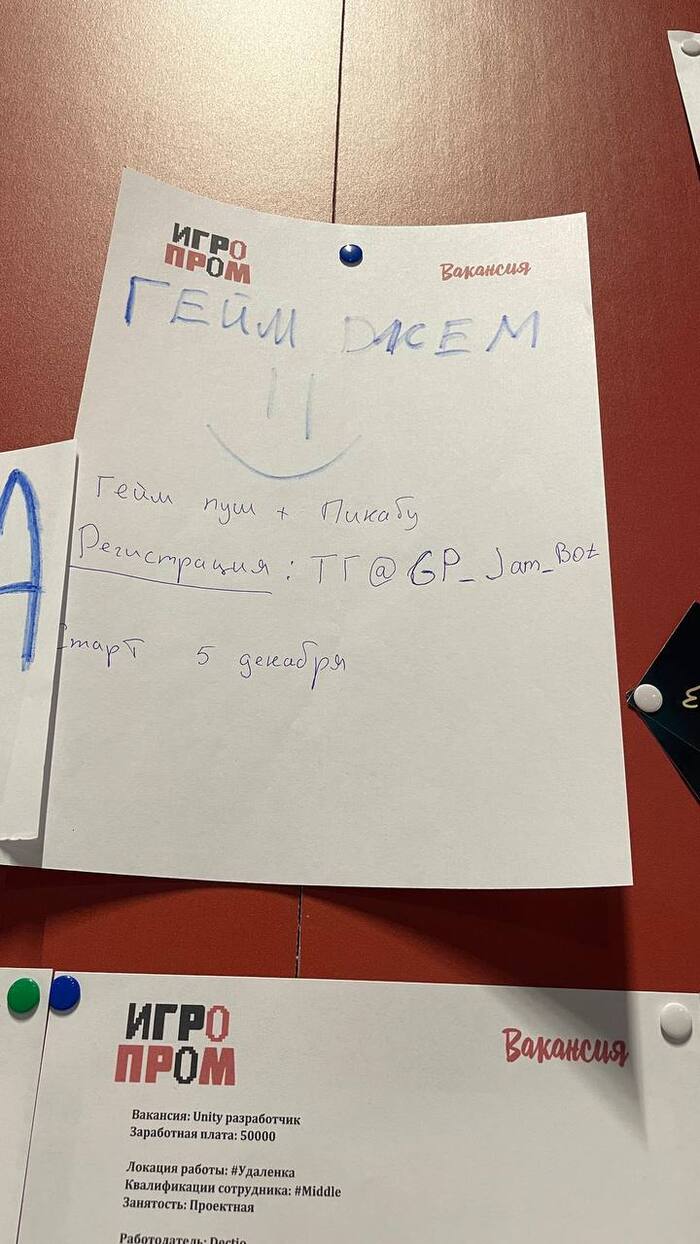 ИГРО
ПРОМ
Вакансия
ГЕЙМ ДЖЕМ
Гейм пуш + Пикабу
Регистрация: ТГ @GP_Jam_Bot
Старт 5 декабря
А
ИГРО
ПРОМ
Вакансия
Вакансия: Unity разработчик
Заработная плата: 50000
Локация работы: #Удаленка
Квалификации сотрудника: #Middle
Занятость: Проектная
Работодатель: